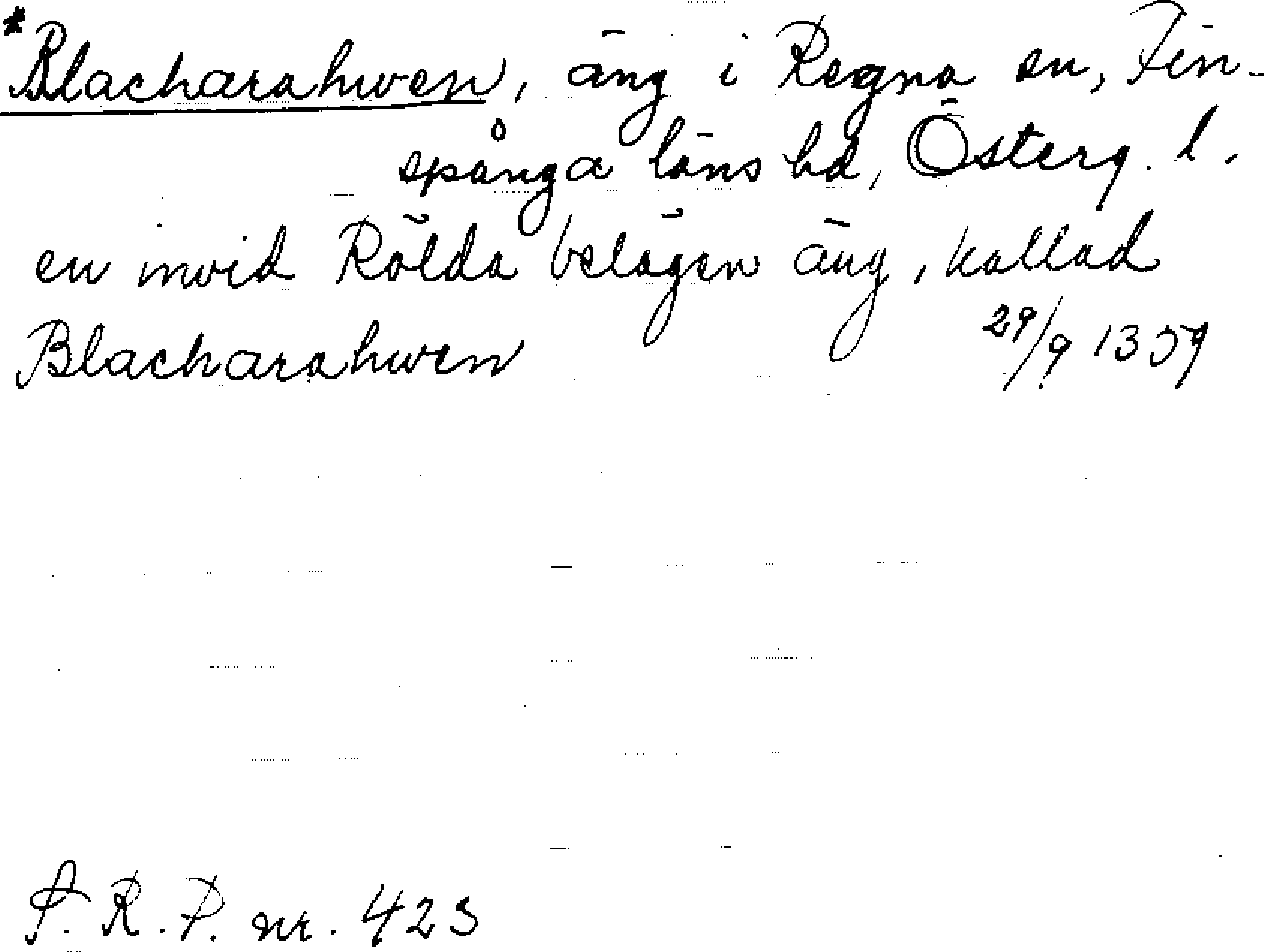 *Blacharahwen, äng i Regna sn, Fin-
spånga läns hd, Österg. l.
en invid Rölda belägen äng, kallad
Blacharahwen 29/9 1359
S. R. P. nr. 423